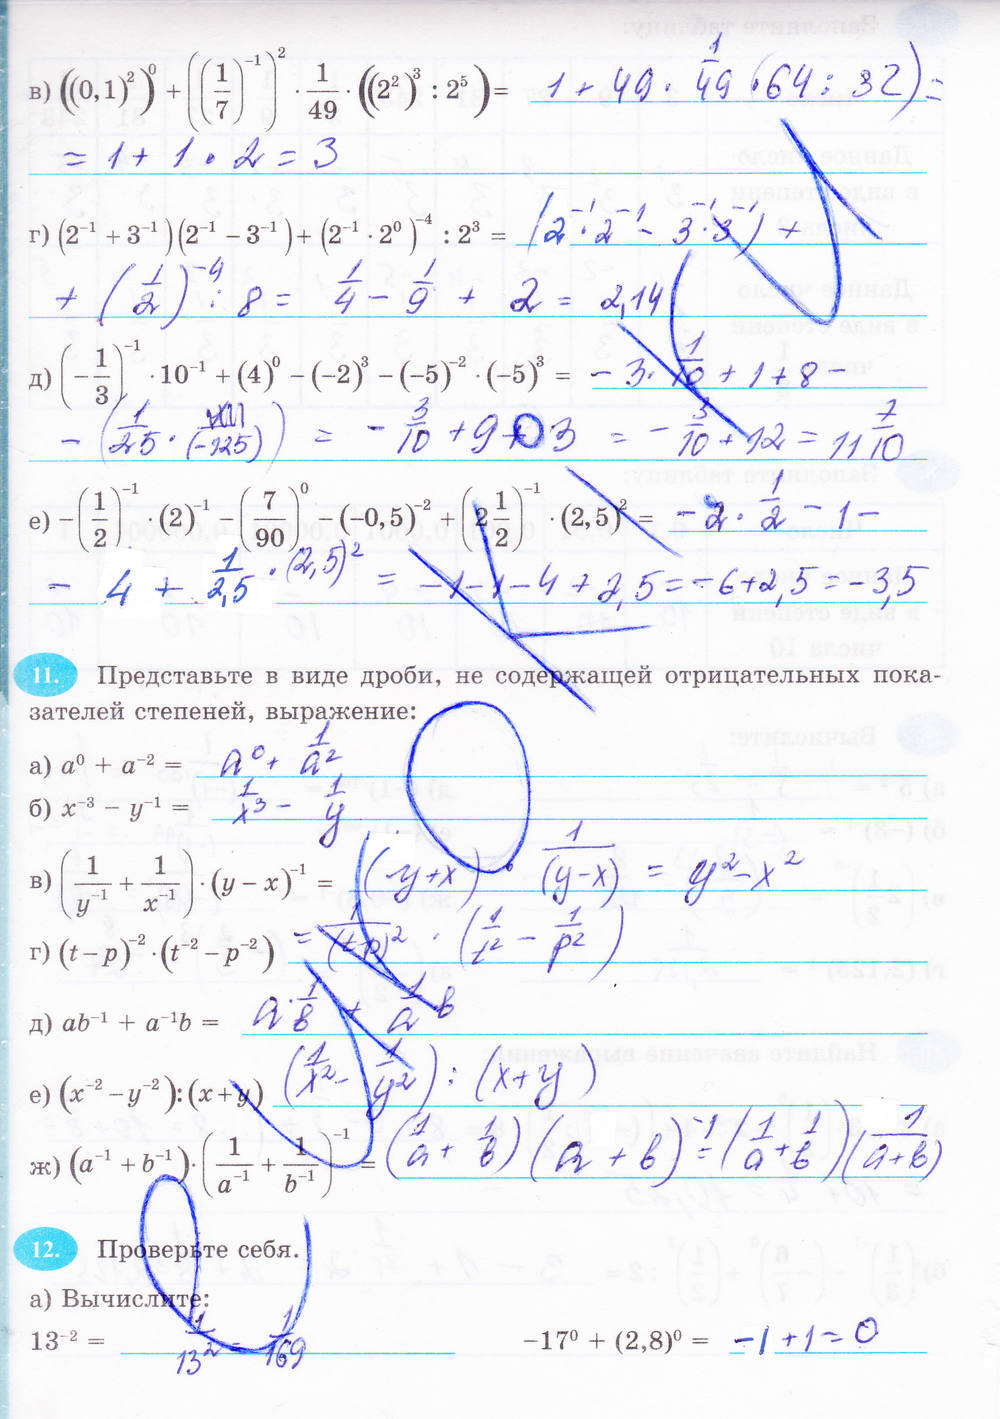 в) ((0,1)²)⁰ + ((1/7)⁻¹)² · 1/49 · ((2²)³ : 2⁵) = 1 + 49 · 1/49 · (64 : 32) =
= 1 + 1 · 2 = 3
г) (2⁻¹ + 3⁻¹)(2⁻¹ − 3⁻¹) + (2⁻¹ · 2⁰)⁻⁴ : 2³ = (2⁻¹ · 2⁻¹ − 3⁻¹ · 3⁻¹) +
+ (1/2)⁻⁴ : 8 = 1/4 − 1/9 + 2 = 2,14
д) (−1/3)⁻¹ · 10⁻¹ + (4)⁰ − (−2)³ − (−5)⁻² · (−5)³ = −3 · 1/10 + 1 + 8 −
− (1/25 · (−125)) = −3/10 + 9 + 3 = −3/10 + 12 = 11 7/10
е) −(1/2)⁻¹ · (2)⁻¹ − (7/90)⁰ − (−0,5)⁻² + (2 1/2)⁻¹ · (2,5)² = −2 · 1/2 − 1 −
− 4 + 1/2,5 · (2,5)² = −1 − 1 − 4 + 2,5 = −6 + 2,5 = −3,5
11. Представьте в виде дроби, не содержащей отрицательных пока-
зателей степеней, выражение:
а) a⁰ + a⁻² = a⁰ + 1/a²
б) x⁻³ − y⁻¹ = 1/x³ − 1/y
в) (1/y⁻¹ + 1/x⁻¹) · (y − x)⁻¹ = (y + x) · 1/(y − x) = y² − x²
г) (t − p)⁻² · (t⁻² − p⁻²) = 1/(t−p)² · (1/t² − 1/p²)
д) ab⁻¹ + a⁻¹b = a · 1/в + 1/a в
е) (x⁻² − y⁻²) : (x + y) (1/x² − 1/y²) : (x + y)
ж) (a⁻¹ + b⁻¹) · (1/a⁻¹ + 1/b⁻¹)⁻¹ = (1/a + 1/в) (a + в)⁻¹ = (1/a + 1/в)(1/(a+в))
12. Проверьте себя.
а) Вычислите:
13⁻² = 1/13² = 1/169 −17⁰ + (2,8)⁰ = −1 + 1 = 0